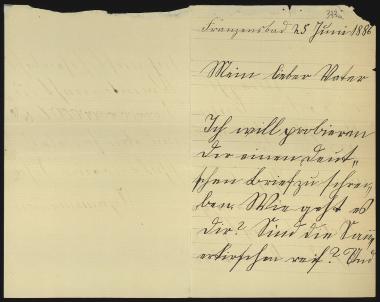 Franzensbad 25 Juni 1886
Mein lieber Vater
Ich will probieren
Dir einen Deut„
schen Brief zu schrei„
ben. Wie geht es
Dir? Sind die Sau„
erkirschen reif? Und